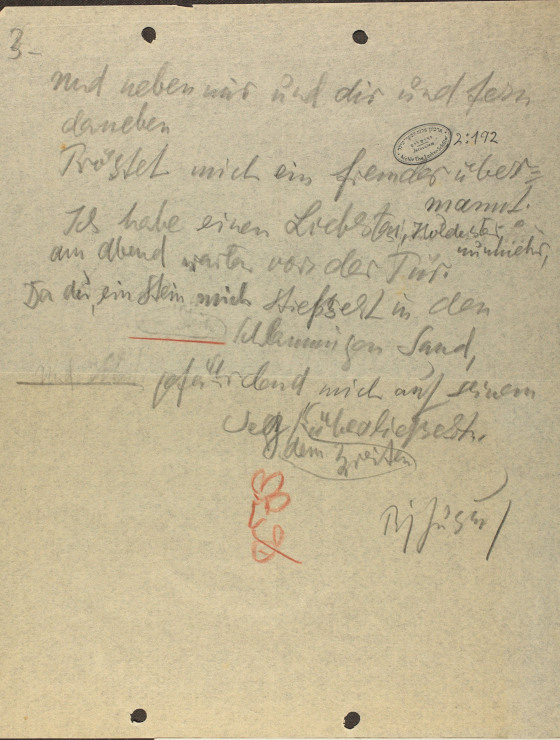 3-
und neben mir und dir und fern
daneben
2:192
Tröstet mich ein fremder über=
mannt.
Ich habe einen Liebsten, Holdester
nunmehr,
am Abend warten vor der Tür.
Da du, ein Stein mich stießest in den
schlammigen Sand,
gefährdend mich auf seinem
überließest.
dem zweiten